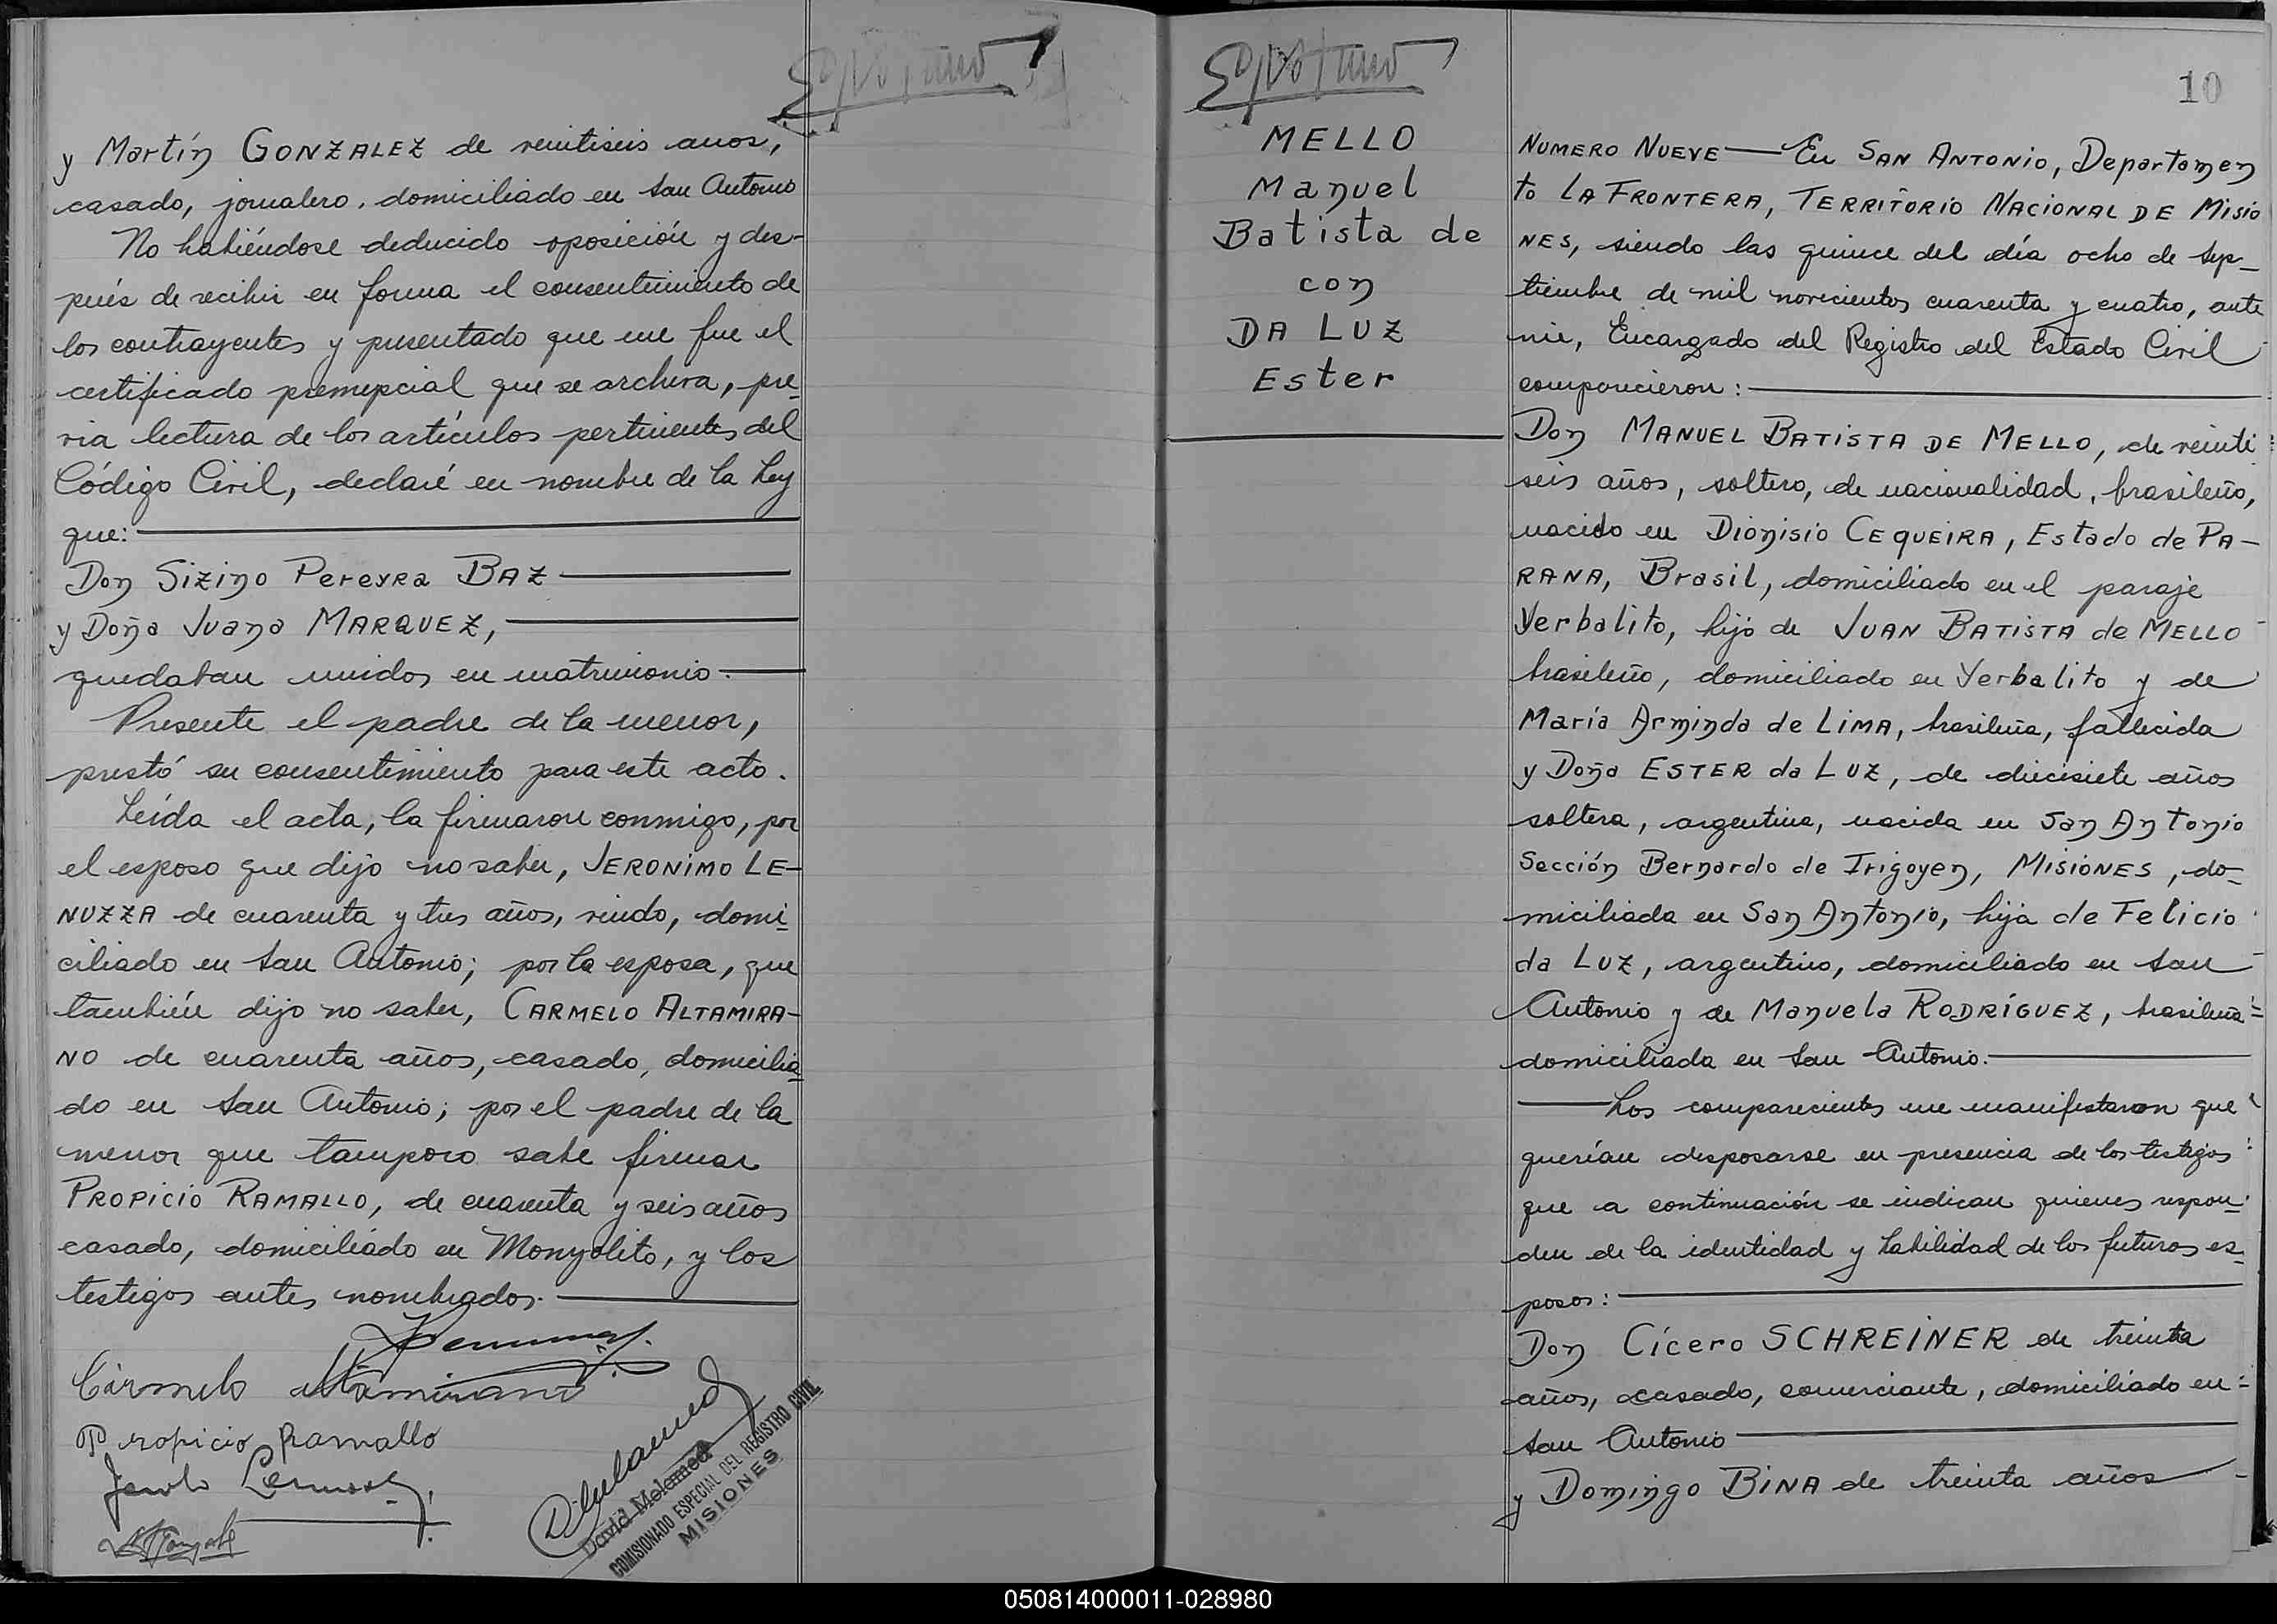 y Martín GONZALEZ de veintiseis años,
casado, jornalero, domiciliado en San Antonio
No habiéndose deducido oposición y des-
pués de recibir en forma el consentimiento de
los contrayentes y presentado que me fue el
certificado prenupcial que se archiva, pre-
via lectura de los artículos pertinentes del
Código Civil, declaré en nombre de la Ley
que:
Don Sizino Pereyra BAZ
y Doña Juana MARQUEZ,
quedaban unidos en matrimonio.
Presente el padre de la menor,
prestó su consentimiento para este acto.
Leída el acta, la firmaron conmigo, por
el esposo que dijo no saber, JERONIMO LE-
NUZZA de cuarenta y tres años, viudo, domi-
ciliado en San Antonio; por la esposa, que
también dijo no saber, CARMELO ALTAMIRA-
NO de cuarenta años, casado, domicilia-
do en San Antonio; por el padre de la
menor que tampoco sabe firmar
PROPICIO RAMALLO, de cuarenta y seis años
casado, domiciliado en Monyolito, y los
testigos antes nombrados.
Carmelo Altamirano
Propicio Ramallo
David Melamed
COMISIONADO ESPECIAL DEL REGISTRO CIVIL
MISIONES
MELLO
Manuel
Batista de
con
DA LUZ
Ester
10
NUMERO NUEVE — En SAN ANTONIO, Departamen
to LA FRONTERA, TERRITORIO NACIONAL DE MISIO
NES, siendo las quince del día ocho de Sep-
tiembre de mil novecientos cuarenta y cuatro, ante
mi, Encargado del Registro del Estado Civil
comparecieron:
Don MANUEL BATISTA DE MELLO, de veinti
seis años, soltero, de nacionalidad, brasileño,
nacido en Dionisio CEQUEIRA, Estado de PA-
RANA, Brasil, domiciliado en el paraje
Yerbalito, hijo de JUAN BATISTA de MELLO
brasileño, domiciliado en Yerbalito y de
María Arminda de LIMA, brasileña, fallecida
y Doña ESTER da LUZ, de diecisiete años
soltera, argentina, nacida en San Antonio
Sección Bernardo de Irigoyen, MISIONES, do-
miciliada en San Antonio, hija de Felicio
da LUZ, argentino, domiciliado en San
Antonio y de Manuela RODRÍGUEZ, brasileña
domiciliada en San Antonio.
Los comparecientes me manifestaron que
querían desposarse en presencia de los testigos
que a continuación se indican quienes respon-
den de la identidad y habilidad de los futuros es-
posos:
Don Cícero SCHREINER de treinta
años, casado, comerciante, domiciliado en
San Antonio
y Domingo BINA de treinta años
050814000011-028980